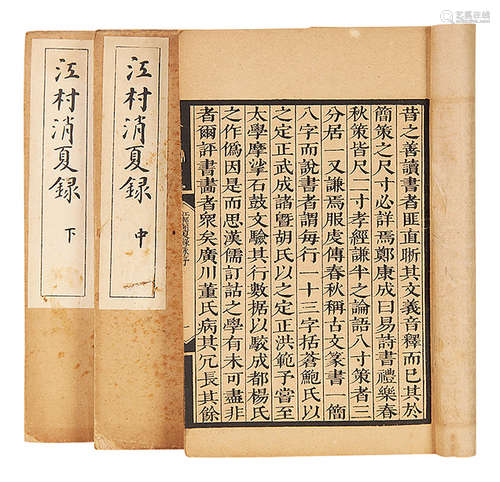 昔之善讀書者匪直晣其文義音釋而已其於
簡策之尺寸必詳焉鄭康成曰易詩書禮樂春
秋策皆尺二寸孝經謙半之論語八寸策者三
分居一又謙焉服虔傳春秋稱古文篆書一簡
八字而說書者謂每行一十三字括蒼鮑氏以
之定正武成諸曁胡氏以之定正洪範予嘗至
太學摩挲石鼓文驗其行數據以駮成都楊氏
之作僞因是而思漢儒訂詁之學有未可盡非
者爾評書畵者衆矣廣川董氏病其冗長其餘
江村消夏録
中
江村消夏録
下